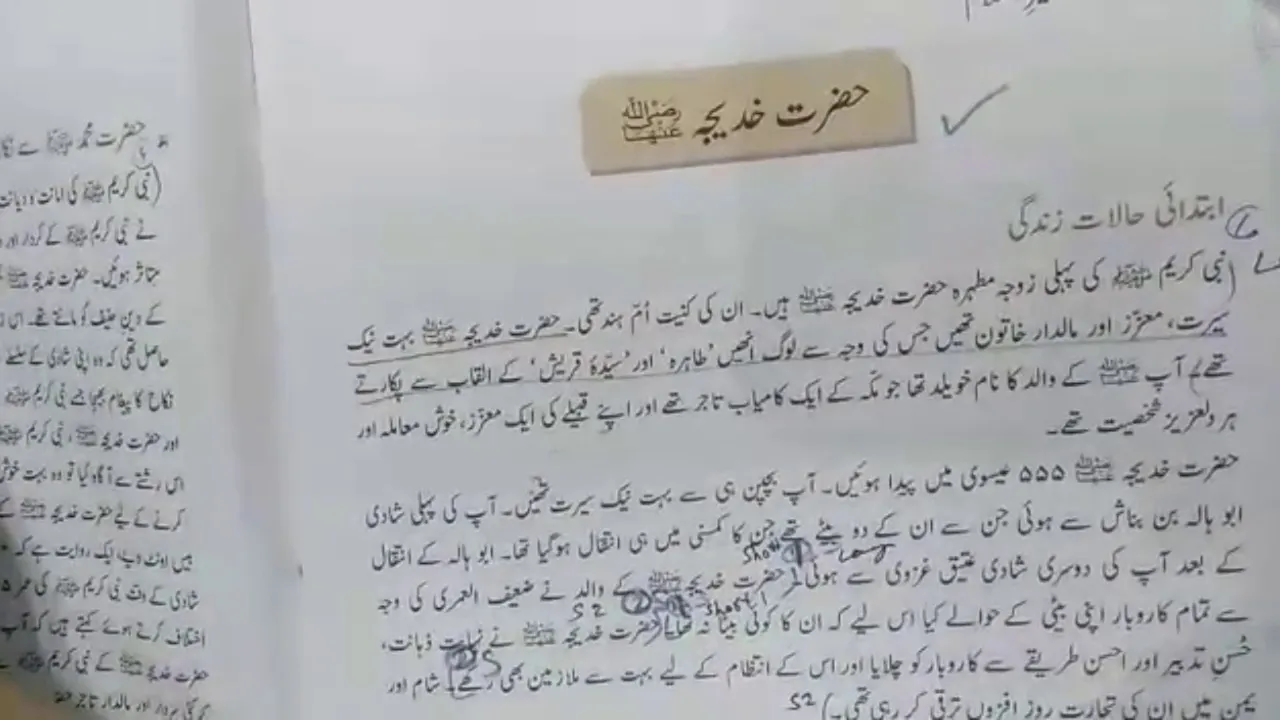 حضرت خدیجہ رضی اللہ عنہا
ابتدائی حالات زندگی
(نبی کریم ﷺ کی پہلی زوجہ مطہرہ حضرت خدیجہ رضی اللہ عنہا ہیں۔ ان کی کنیت اُمّ ہند تھی۔ حضرت خدیجہ رضی اللہ عنہا بہت نیک
سیرت، معزّز اور مالدار خاتون تھیں جس کی وجہ سے لوگ انھیں ’طاہرہ‘ اور ’سیّدۂ قریش‘ کے القاب سے پکارتے
تھے) آپ رضی اللہ عنہا کے والد کا نام خویلد تھا جو مکّہ کے ایک کامیاب تاجر تھے اور اپنے قبیلے کی ایک معزّز، خوش معاملہ اور
ہر دلعزیز شخصیت تھے۔
حضرت خدیجہ رضی اللہ عنہا ۵۵۵ عیسوی میں پیدا ہوئیں۔ آپ بچپن ہی سے بہت نیک سیرت تھیں۔ آپ کی پہلی شادی
ابو ہالہ بن بناش سے ہوئی جن سے ان کے دو بیٹے تھے جن کا کمسنی میں ہی انتقال ہوگیا تھا۔ ابو ہالہ کے انتقال
کے بعد آپ کی دوسری شادی عتیق غزوی سے ہوئی۔ (حضرت خدیجہ رضی اللہ عنہا کے والد نے ضعیف العمری کی وجہ
سے تمام کاروبار اپنی بیٹی کے حوالے کیا اس لیے کہ ان کا کوئی بیٹا نہ تھا۔) (حضرت خدیجہ رضی اللہ عنہا نے نہایت ذہانت،
حُسنِ تدبیر اور احسن طریقے سے کاروبار کو چلایا اور اس کے انتظام کے لیے بہت سے ملازمین بھی رکھے۔ شام اور
یمن میں ان کی تجارت روز افزوں ترقی کر رہی تھی۔) S2
حضرت محمد ﷺ سے
(نبی کریم ﷺ کی امانت و دیانت
نے نبی کریم ﷺ کے کردار اور
متاثر ہوئیں۔ حضرت خدیجہ رضی اللہ عنہا
کے دینِ حنیف کو مانتے تھے۔ اس
حاصل تھی کہ وہ اپنی شادی کے سلسلے
نکاح کا پیغام بھیجا جسے نبی کریم ﷺ
اور حضرت خدیجہ رضی اللہ عنہا، نبی کریم ﷺ
اس رشتے سے آگاہ کیا تو وہ بہت خوش
کرنے کے لیے حضرت خدیجہ رضی اللہ عنہا کے
بیس اونٹ دیے۔ ایک روایت ہے کہ
شادی کے وقت نبی کریم ﷺ کی عمر
اختلاف کرتے ہوئے کہتے ہیں کہ آپ
حضرت خدیجہ رضی اللہ عنہا کے نبی کریم ﷺ
سردار اور مالدار تاجر